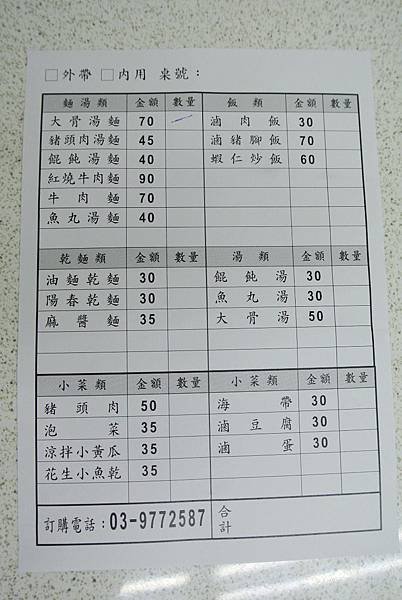 □外帶 □內用 桌號：
麵湯類 金額 數量 飯類 金額 數量
大骨湯麵 70 滷肉飯 30
豬頭肉湯麵 45 滷豬腳飯 70
餛飩湯麵 40 蝦仁炒飯 60
紅燒牛肉麵 90
牛肉麵 70
魚丸湯麵 40
乾麵類 金額 數量 湯類 金額 數量
油麵乾麵 30 餛飩湯 30
陽春乾麵 30 魚丸湯 30
麻醬麵 35 大骨湯 50
小菜類 金額 數量 小菜類 金額 數量
豬頭肉 50 海帶 30
泡菜 35 滷豆腐 30
涼拌小黃瓜 35 滷蛋 30
花生小魚乾 35
訂購電話：03-9772587 合計